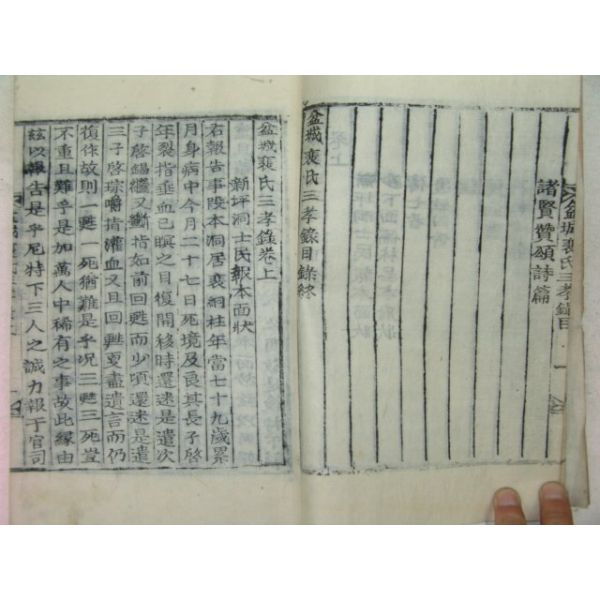 諸賢贊頌詩篇
盆城裵氏三孝錄目
一
盆城裵氏三孝錄目錄終
盆城裵氏三孝錄卷上
新坪洞士民報本面狀
右報告事陜本洞居裵綱柱年當七十九歲累
月身病中今月二十七日死境及良其長子啓
年裂指垂血己瞑之目復開移時還迷是遣次
子啓錫繼又斷指如前回甦而少頃還迷是遣
三子啓琮嚼指灌血又且回甦更盡遺言而仍
復作故則一甦一死猶難是乎况三甦三死豈
不重且難乎是加萬人中稀有之事故此緣由
玆以報告是乎尼特下三人之誠力報于官司